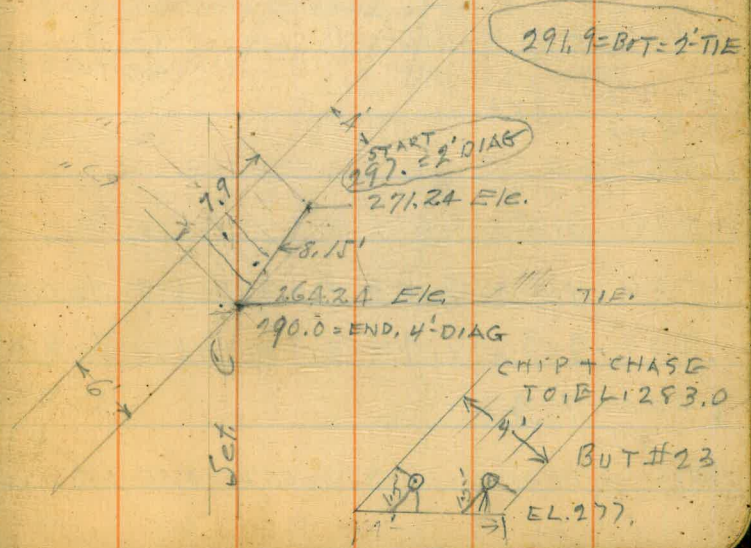 291.9=BOT=2'-TIE
4'
START
297.=2' DIAG
7.9
271.24 Elc.
8.15'
264.24 Elc.
TIE.
290.0=END. 4'-DIAG
6'
CHIP + CHASE
TO. EL. 283.0
4'
BUT #23
1.5'
1.5'
EL. 277.